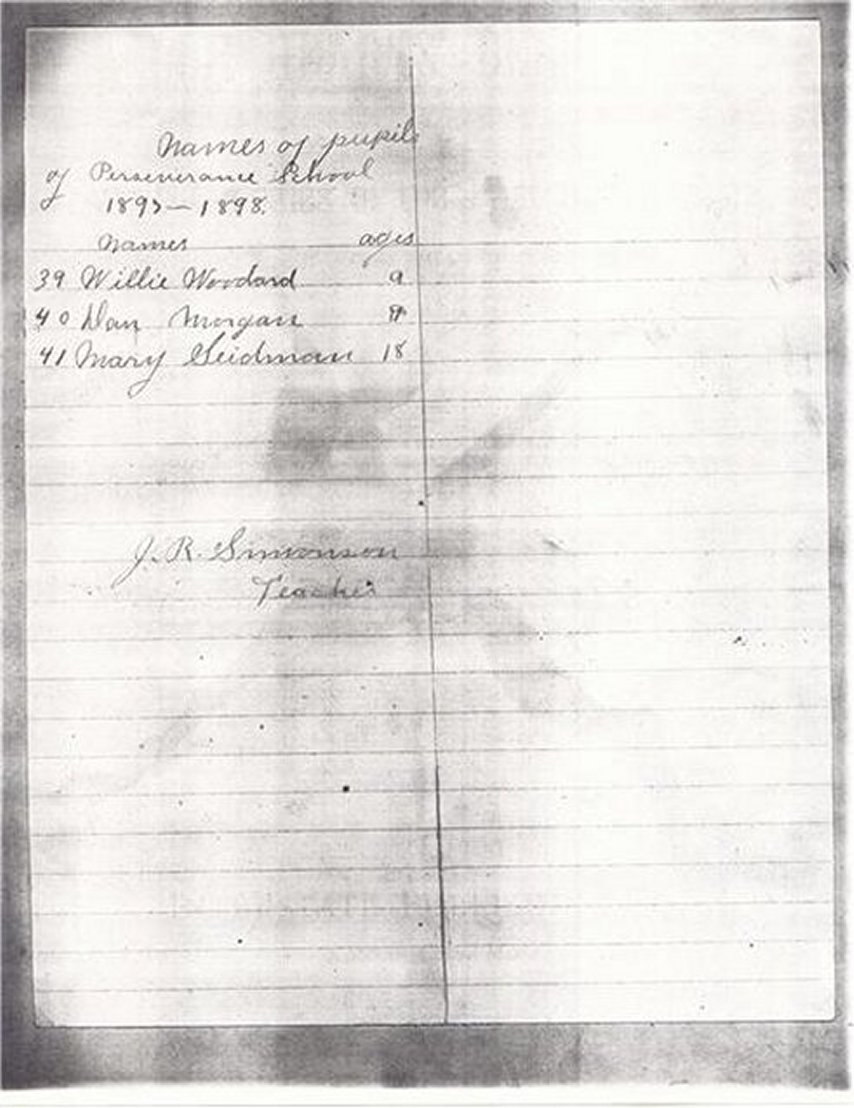 Names of pupils
of Perseverance School
1897—1898.
Names ages
39 Willie Woodard 9
40 Dan Morgan
41 Mary Seidman 18
J. R. Simonson
Teacher